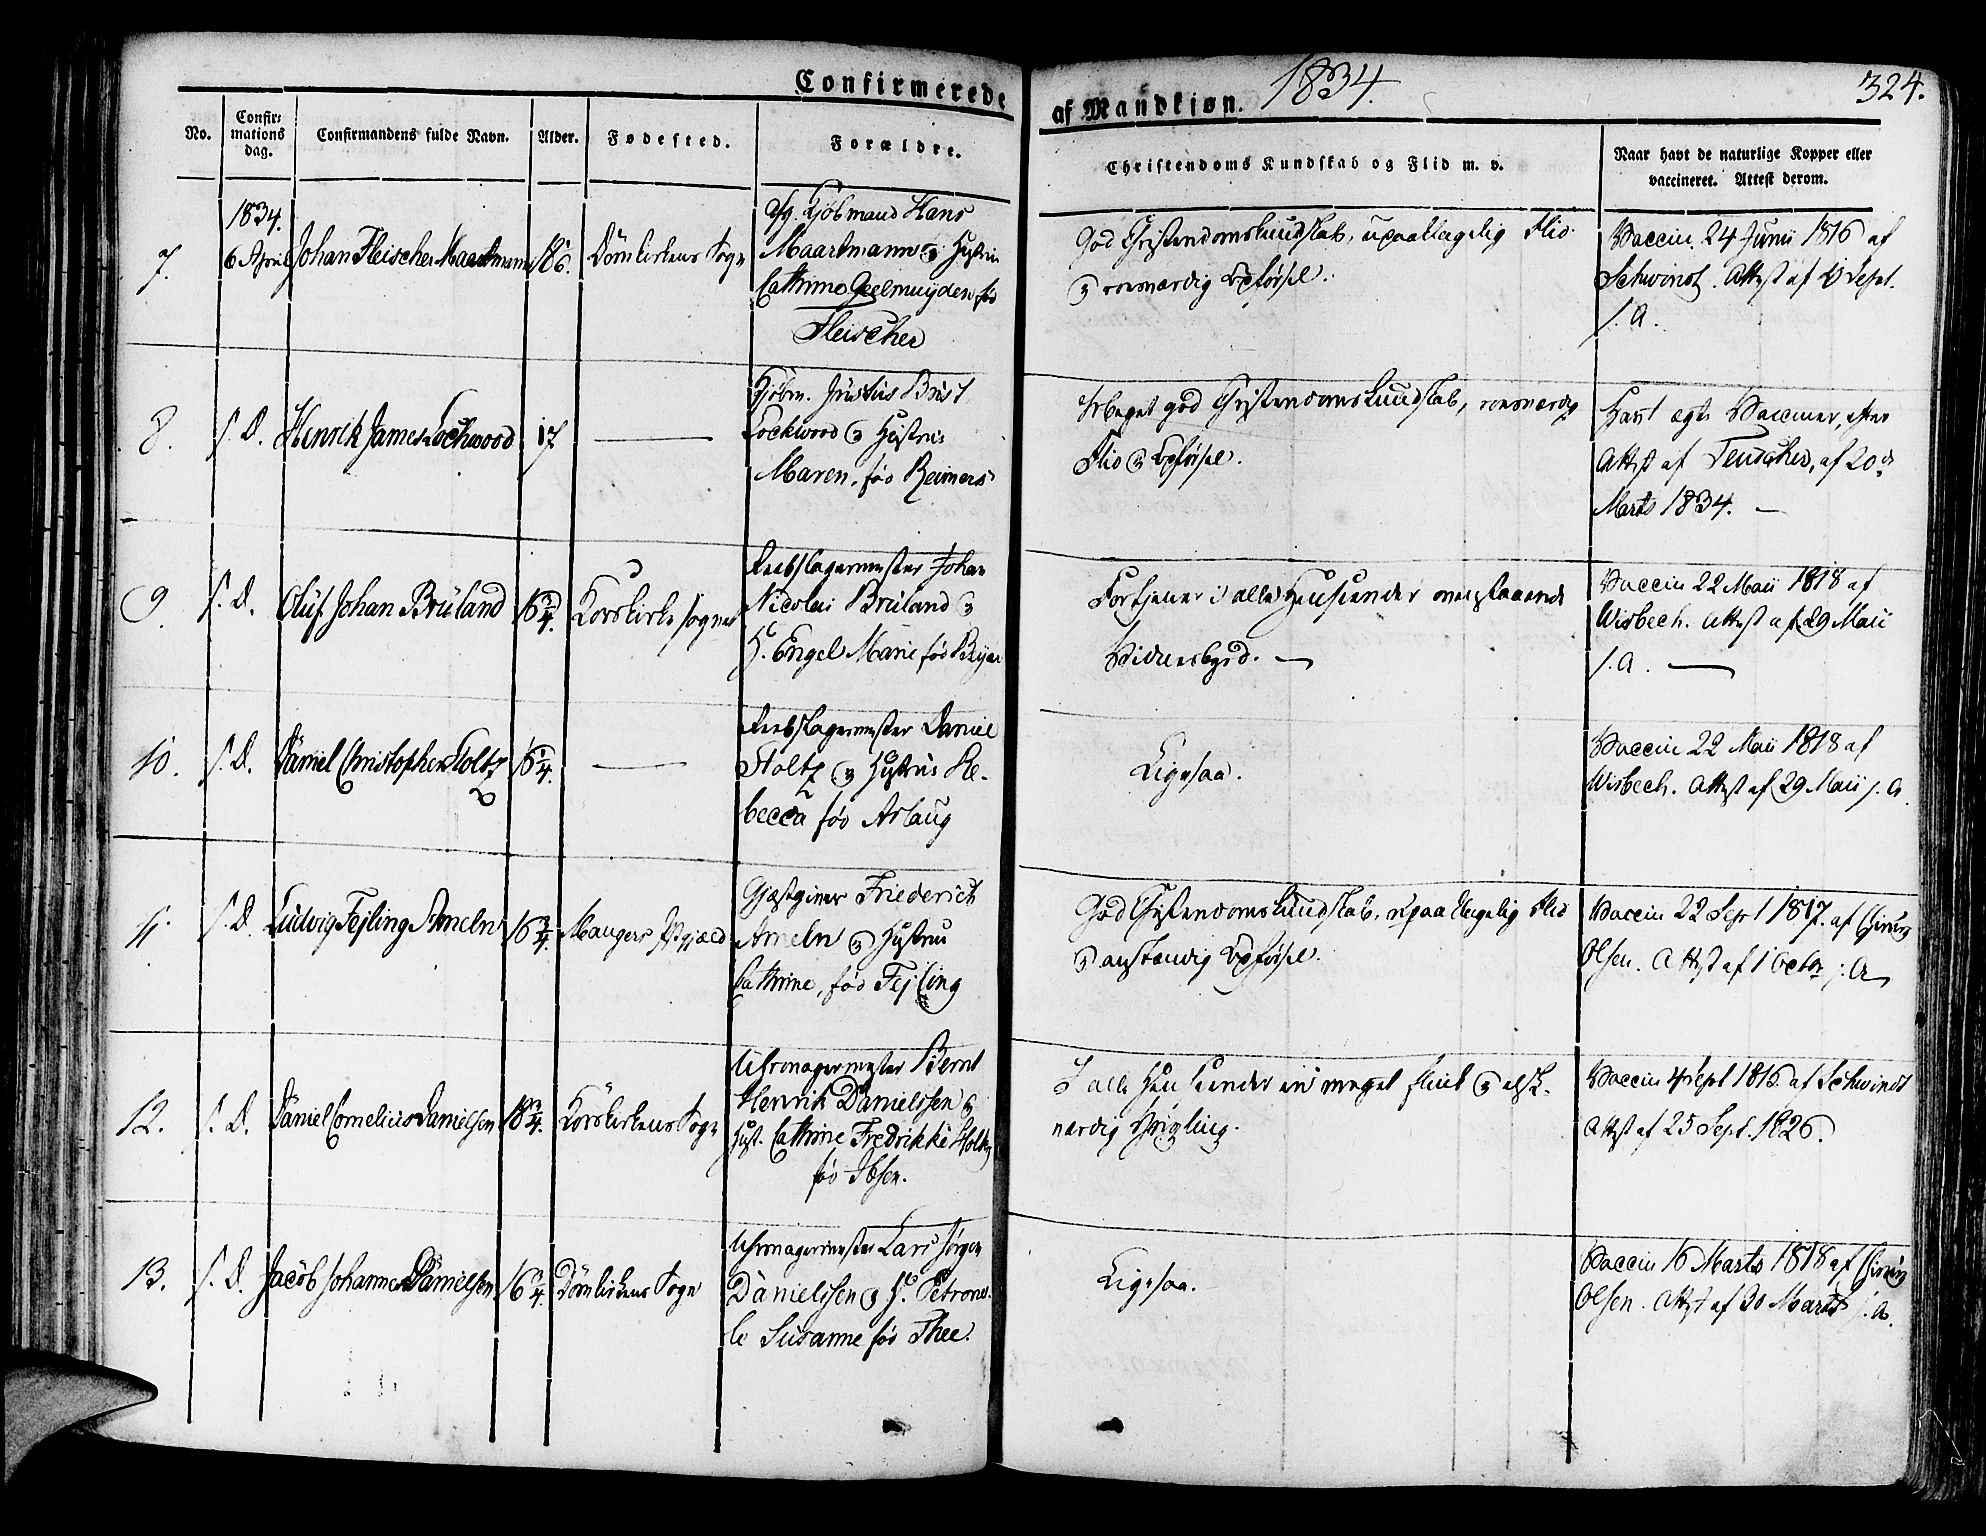 Confirmerede
af Mandkjøn.
1834.
324.
No.
Confir=
mations
dag.
Confirmandens fulde Navn.
Alder.
Fødested.
Forældre.
Christendoms Kundskab og Flid m. v.
Naar havt de naturlige Kopper eller
vaccineret. Attest derom.
1834.
7.
6 April
Johan Fleischer Maartmann
Domkirkens Sogn
Kjøbmand Hans
Maartmann og Hustru
Cathrine Geelmuyden fød
Fleischer
God Christendomskundskab, upaaklagelig Flid
og roesværdig Opførsel.
Vaccin. 24 Junii 1816 af
Schwindt. Attest af Sept.
s. A.
8.
s. D.
Henrik James Lockwood
17
Kjøbm. Justus Brist
Lockwood og Hustrue
Maren, fød Reimers
Meget god Christendomskundskab, roesværdig
Flid og Opførsel.
Havt egte Vacciner, efter
Attest af Teuscher, af 20de
Marts 1834. —
9.
s. D.
Oluf Johan Bruland
16 3/4.
Korskirke Sognet
Reebslagermester Johan
Nicolai Bruland og
H. Engel Marie fød Beyer
Fortjener i alle Henseender ovenstaaende
Vidnesbyrd. —
Vaccin 22 Maii 1818 af
Wisbech. Attest af 29 Maii
s. A. —
10.
s. D.
Daniel Christopher Stoltz
16 1/4.
Reebslagermester Daniel
Stoltz og Hustrue Re-
becca fød Aslaug
Ligesaa.
Vaccin 22 Maii 1818 af
Wisbech. Attest af 29 Maii s. A.
11.
s. D.
Ludvig Fejling Ameln
16 3/4.
Mangers Præstegjæld
Gjæstgiver Friederich
Ameln og Hustru
Cathrine, fød Fejling
God Christendomskundskab, upaaklagelig Flid
og anstændig Opførsel.
Vaccin 22 Sept 1817. af
Olsen. Attest af 1 Octbr s. A.
12.
s. D.
Daniel Cornelius Danielsen
18 3/4.
Korskirkens Sogn
Uhrmagermester Bernt
Henrik Danielssen og
Hust. Cathrine Fredrikke Stoltz
fød Ibsen.
I alle Henseender en meget flink og elsk-
værdig Yngling.
Vaccin 4 Sept 1816. af Schwindt
Attest af 25 Sept. 1826.
13.
s. D.
Jacob Johannes Danielsen
16 1/4.
Domkirkens Sogn
Uhrmagermester Lars Jørgen
Danielssen og H. Petronel-
le Susanne fød Thee.
Ligesaa.
Vaccin 16 Marts 1818 af
Olsen. Attest af 30 Marts s. A.